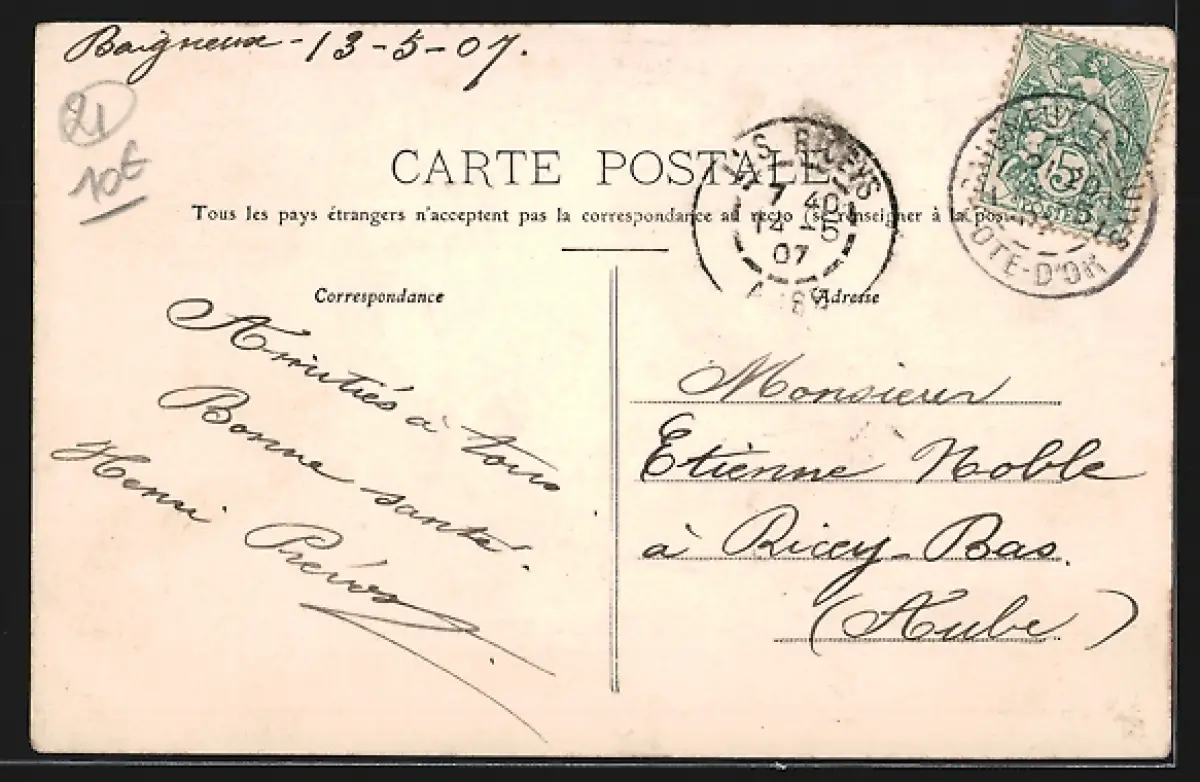 Baigneux - 13-5-07.
21
10€
CARTE POSTALE
Tous les pays étrangers n'acceptent pas la correspondance au recto (se renseigner à la pos
LES RICEYS
7 40
14 - 5
07
AUBE
BAIGNEUX
5
POSTES
CÔTE-D'OR
Correspondance
Amitiés à tous
Bonne santé.
Henri Prévos
Adresse
Monsieur
Etienne Noble
à Ricey-Bas.
(Aube.)